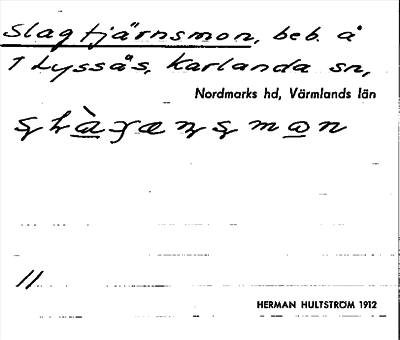 Slagtjärnsmon, beb. å
1 Lyssås, Karlanda sn,
Nordmarks hd, Värmlands län
11
HERMAN HULTSTRÖM 1912